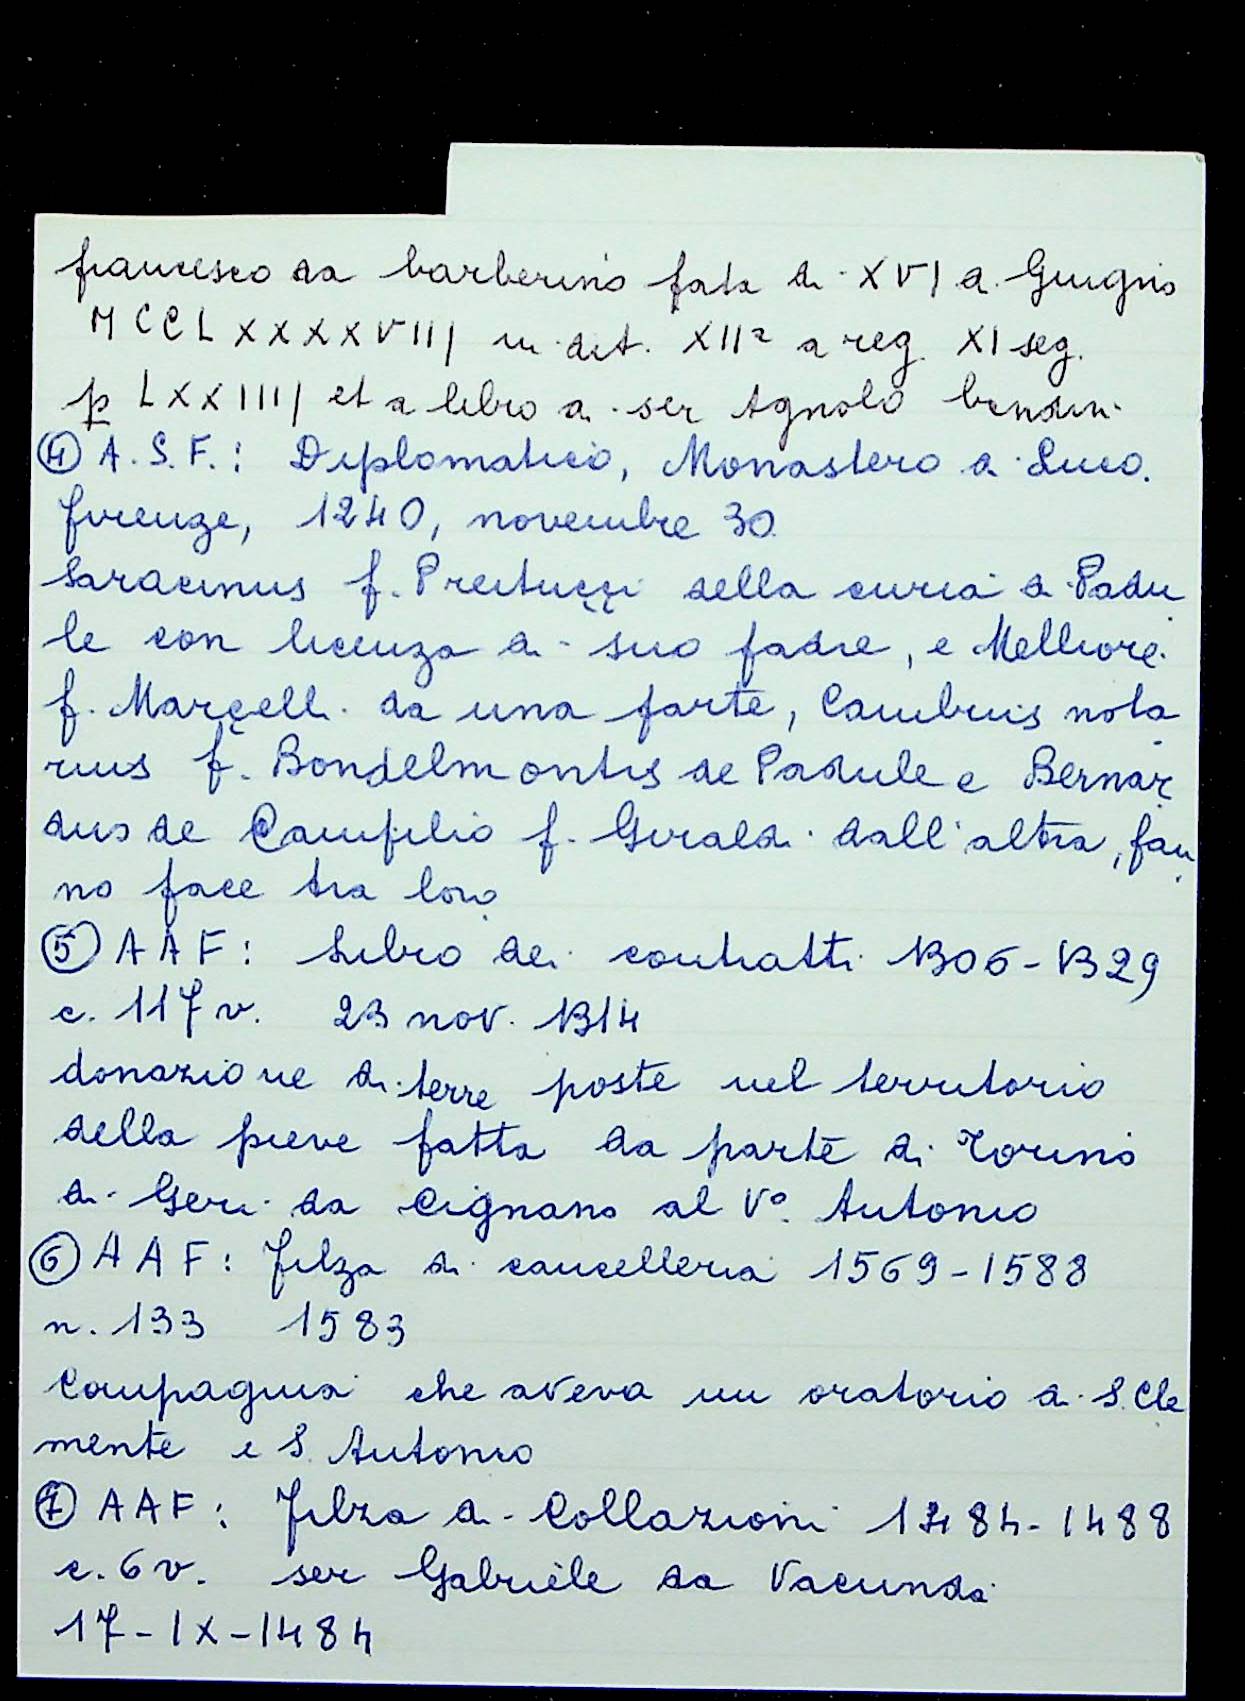 francesco da barberino fata di XVI di Giugno
MCCLXXXXVIII in dit. XIIª a reg. XI seg.
p LXXIII et a libro di ser Agnolo
④ A.S.F.: Diplomatico, Monastero di Luco.
firenze, 1240, novembre 30
Saracinus f. Preituççi della curia di Padu
le con licenza di suo padre, e Melliore
f. Marçelli da una parte, Cambius nota
rius f. Bondelmontis de Padule e Bernar
dus de Campilio f. Geraldi dall'altra, fan
no pace tra loro
⑤ AAF: Libro dei contratti 1306-1329
c. 117v. 23 nov. 1314
donazione di terre poste nel territorio
della pieve fatta da parte di Torino
di Geri da Cignano al Vº. Antonio
⑥ AAF: Filza di cancelleria 1569-1588
n. 133 1583
Compagnia che aveva un oratorio a S. Cle
mente e S. Antonio
⑦ AAF: Filza di Collazioni 1484-1488
c. 6v. ser Gabriele da Vacunda
17-IX-1484